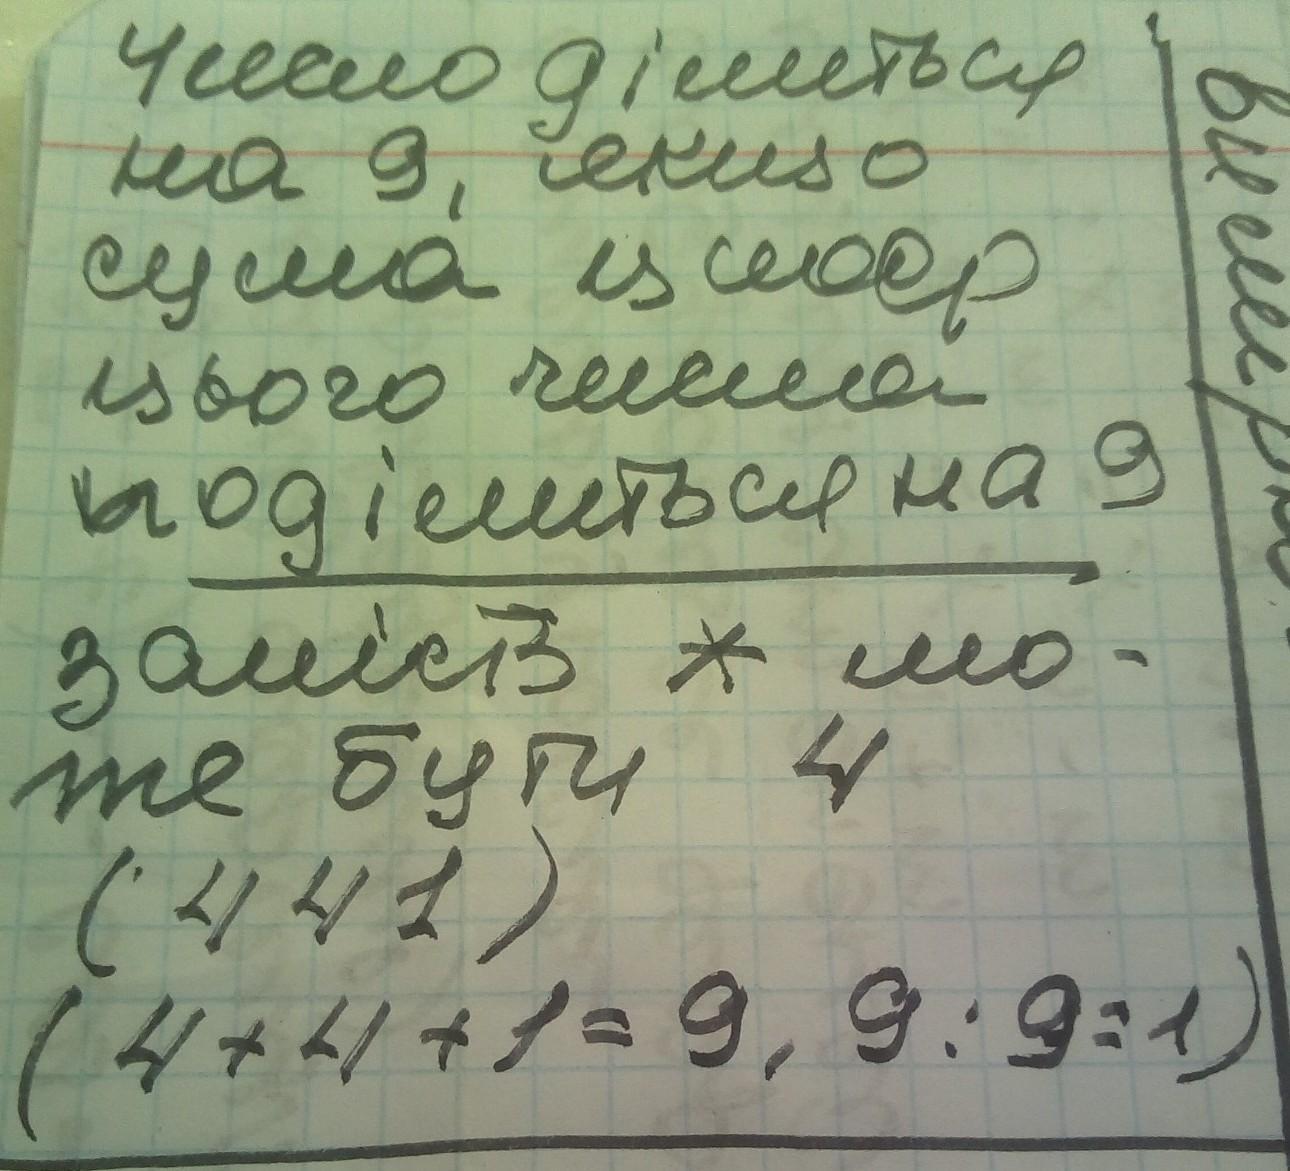 Число ділиться
на 9, якщо
сума цифр
цього числа
поділиться на 9
замість * мо-
же бути 4
(441)
(4+4+1=9, 9:9=1)